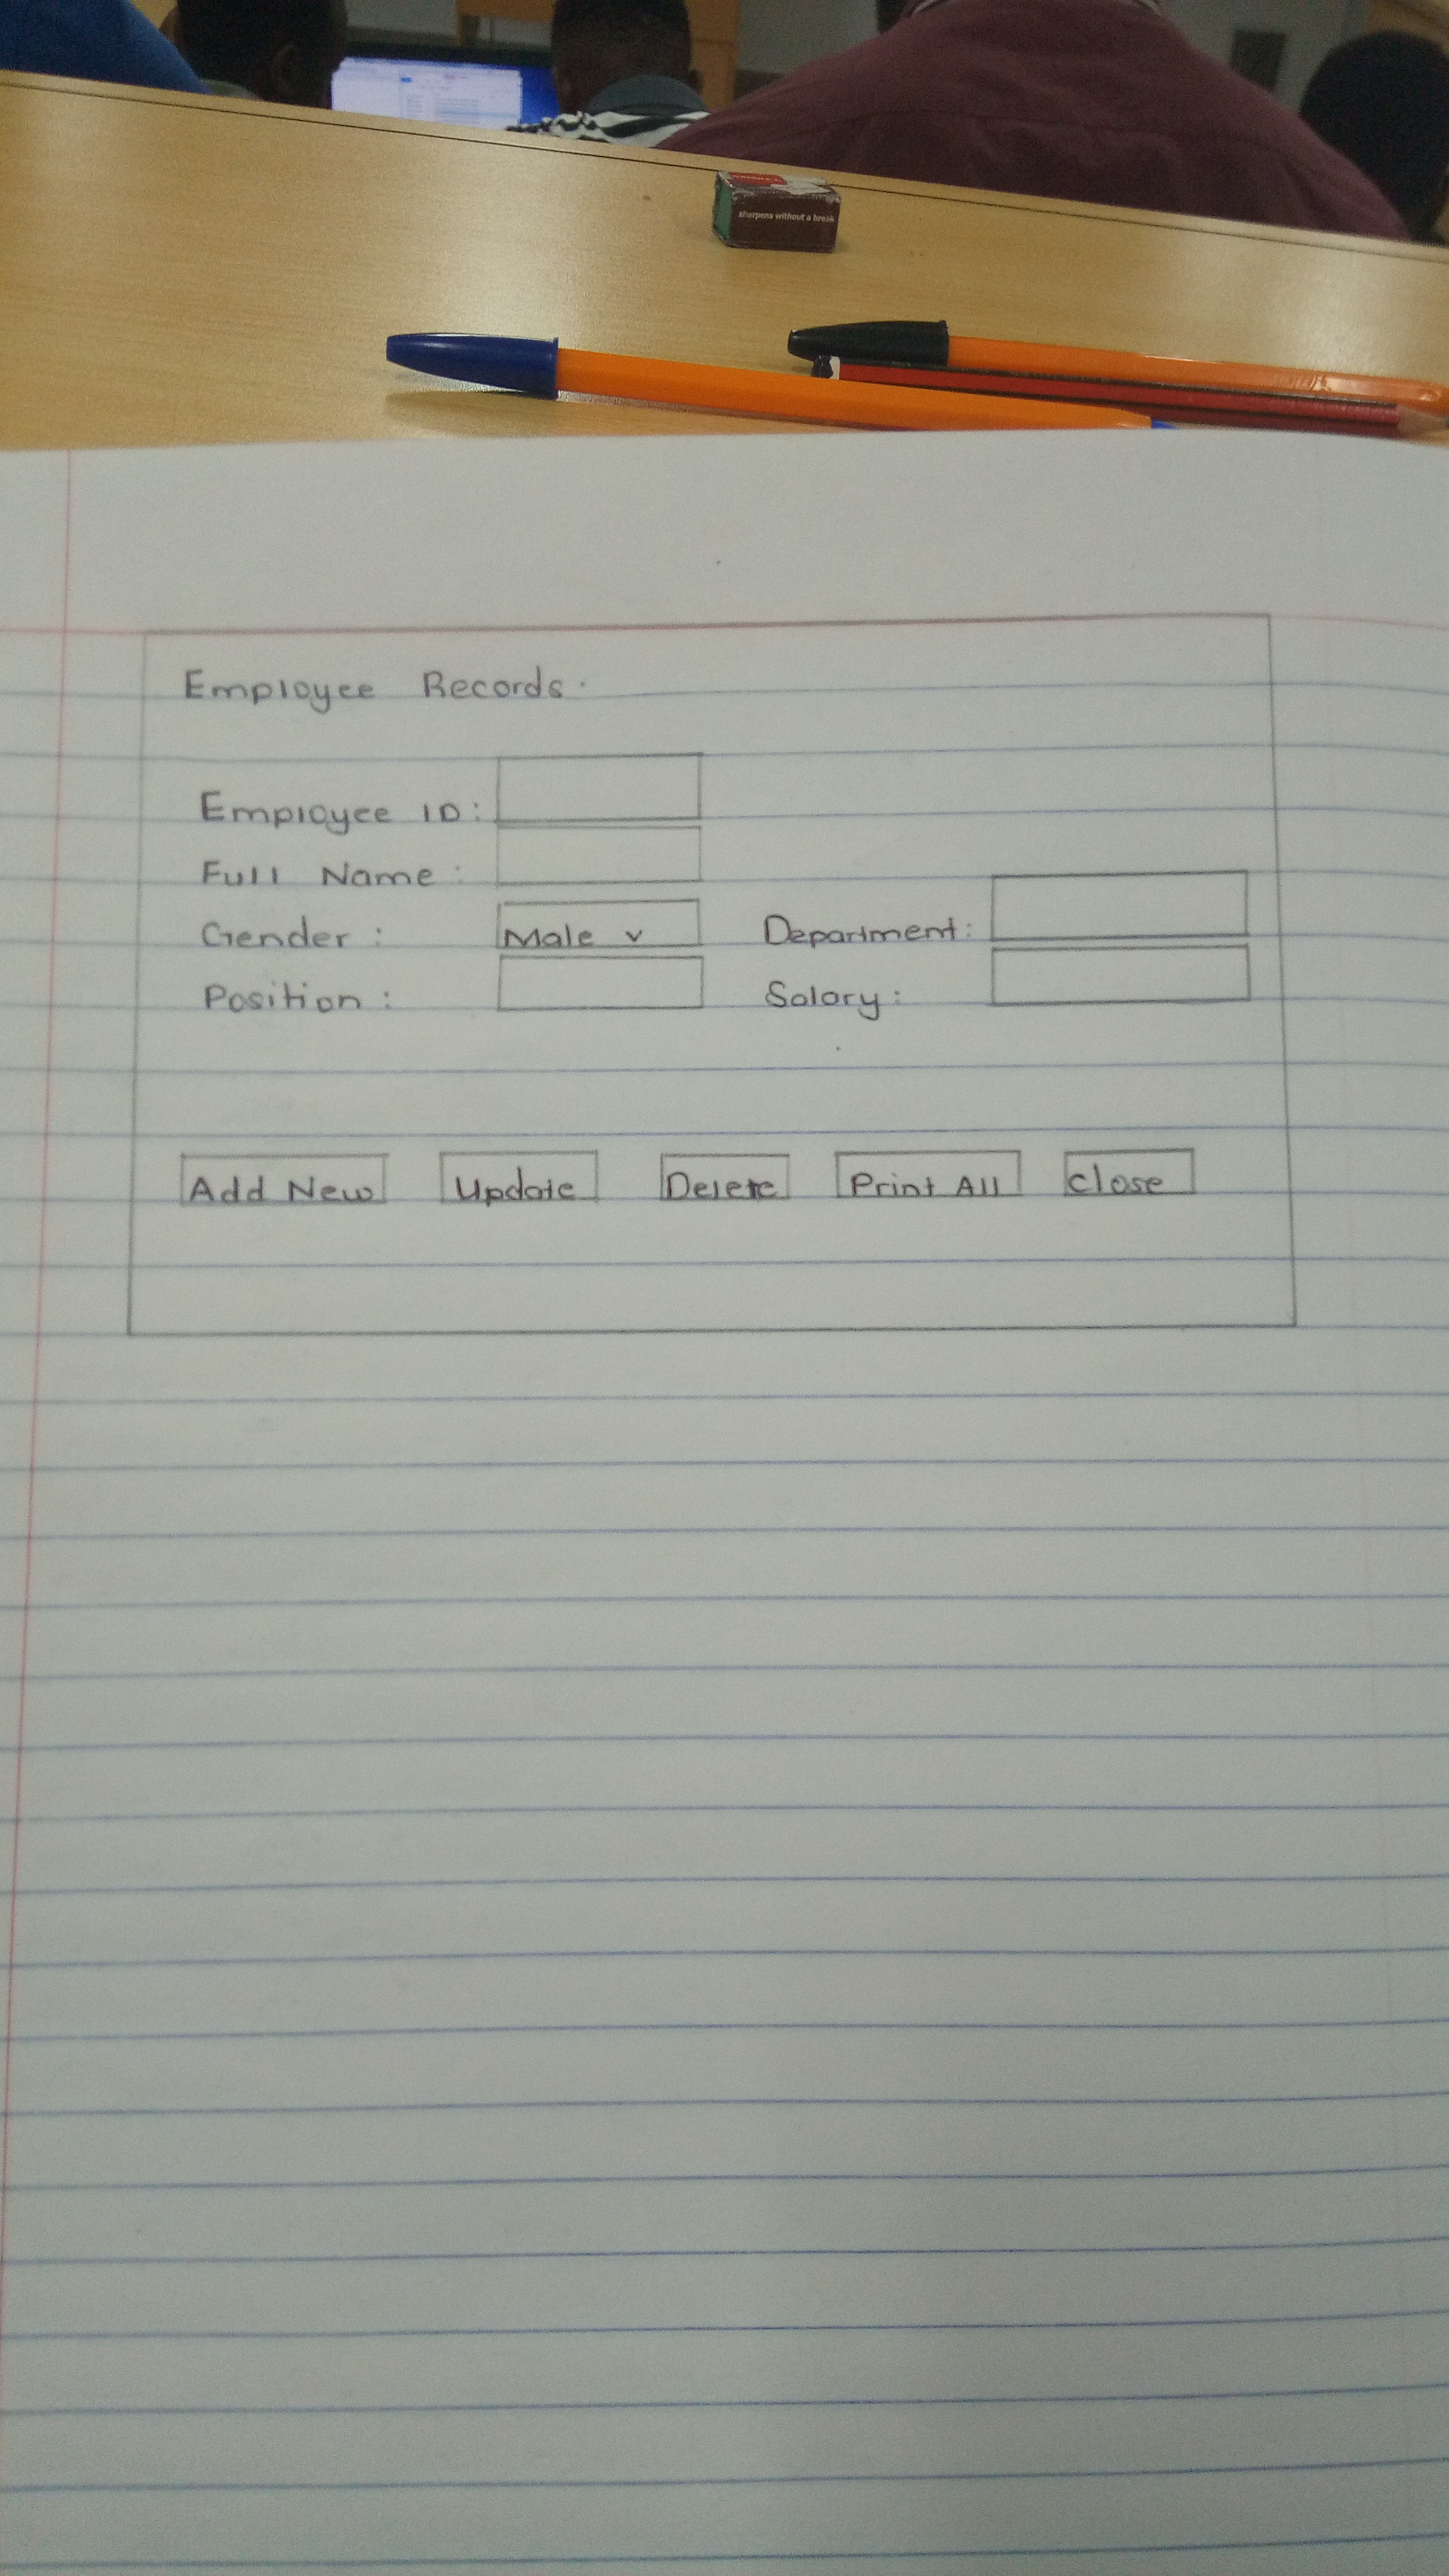 sharpens without a break
Employee Records.
Employee ID:
Full Name :
Gender : Male v Department:
Position : Salary :
Add New Update Delete Print All close